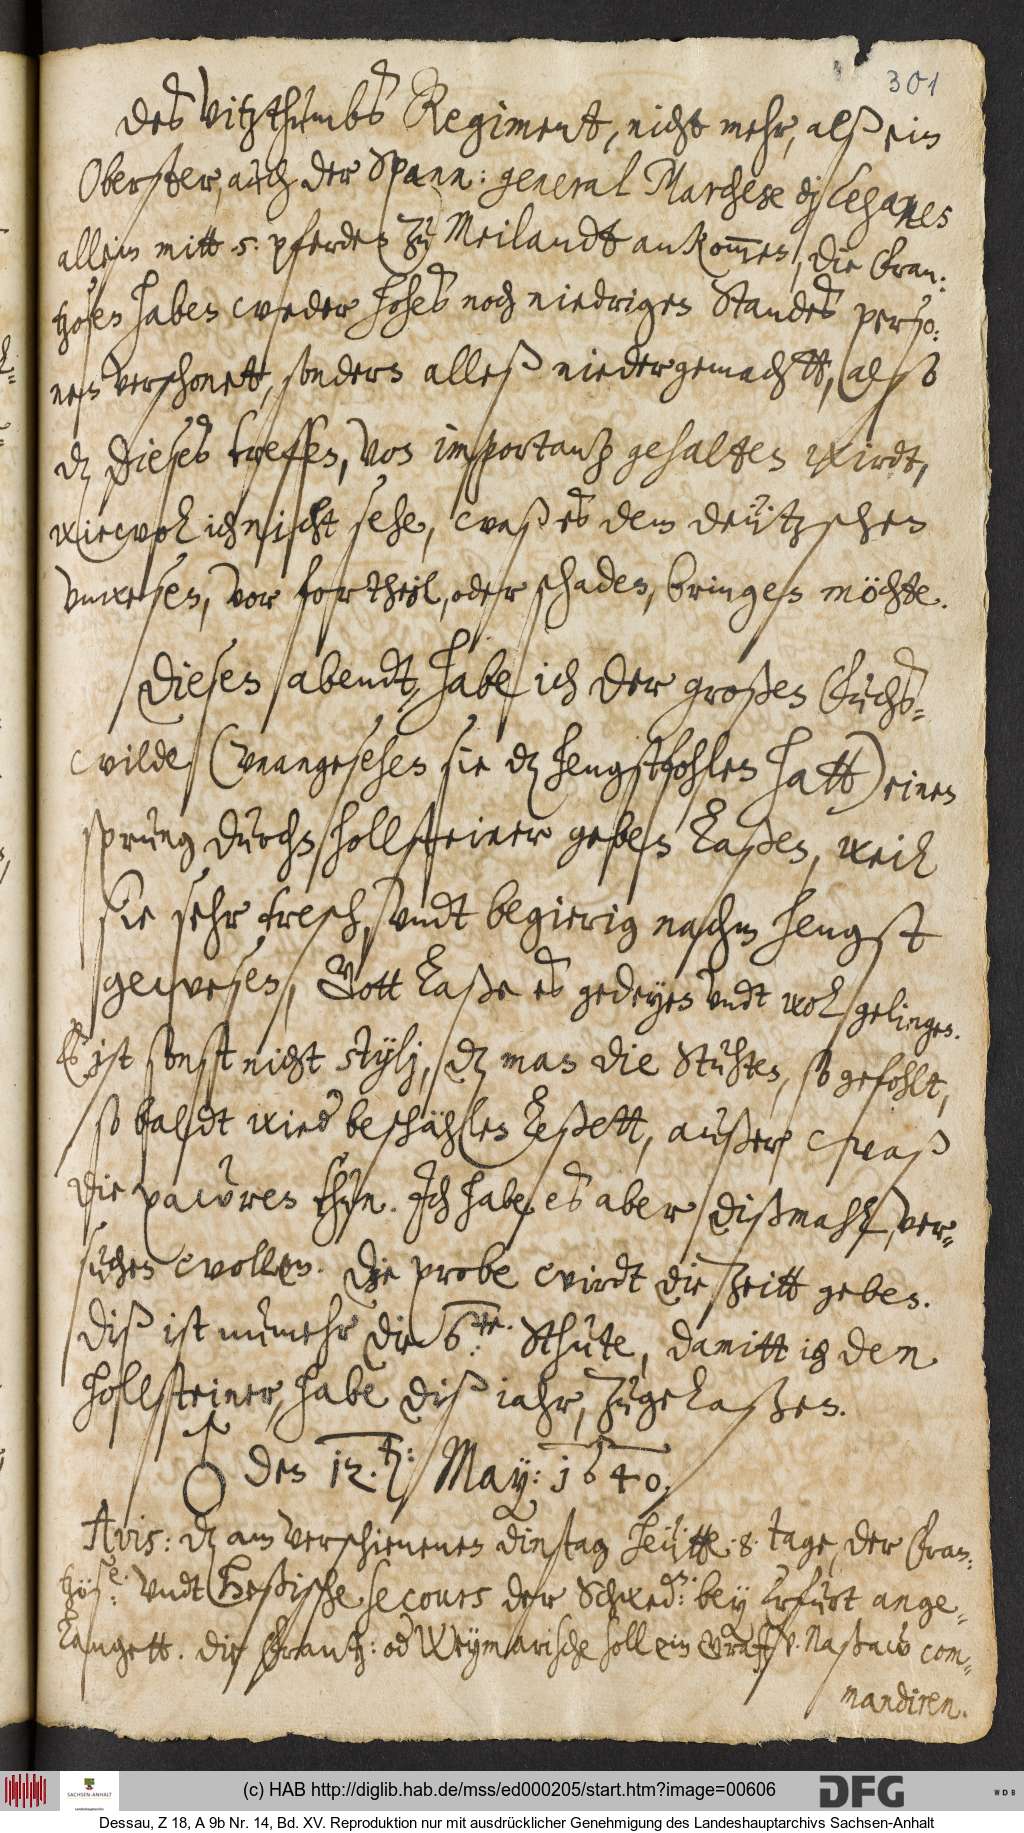 301
des Vitzthumbs Regiment, nicht mehr, alß ein
Oberster, auch der Spann: general Marchese dj Leganes
allein mitt 5. pferden zu Meilandt ankommen, die Fran:
tzosen haben weder hohes noch niedriges Standes perso:
nen verschonett, sondern alleß niedergemachtt, also
dz dieses treffen, von importantz gehalten wirdt,
wiewol ich nicht sehe, waß es dem deützschen
unwesen, vor fortheil, oder schaden, bringen möchte.
Diesen abendt, habe ich der großen Fuchs=
wilde (unangesehen sie dz hengstfohlen hatt) einen
sprung durchn hollsteiner geben laßen, weil
sie sehr fresch, undt begierig nachm hengst
gewesen, Gott laße es gedeyen undt wol gelingen.
Es ist sonst nicht stylj, dz man die Stuhten, so gefohlt,
so baldt wied beschählen leßett, außer waß
die pawren thun. Ich habe es aber dißmahl, ver=
suchen wollen. Die probe wirdt die zeitt geben.
Diß ist numehr die 6.te Sthute, damitt ich den
hollsteiner, habe diß iahr, zugelaßen.
♂ den 12.ten: May: 1640.
Avis: dz am verschienenen dinstag heütte 8. tage, der Fran:
tzös:e undt Heßische secours der Schwed:n bey Erfurt ange=
langett. die Frantz: od Weymarische soll ein Graff v. Naßaw com=
mandiren.
(c) HAB http://diglib.hab.de/mss/ed000205/start.htm?image=00606
SACHSEN-ANHALT
DFG
WDB
Dessau, Z 18, A 9b Nr. 14, Bd. XV. Reproduktion nur mit ausdrücklicher Genehmigung des Landeshauptarchivs Sachsen-Anhalt